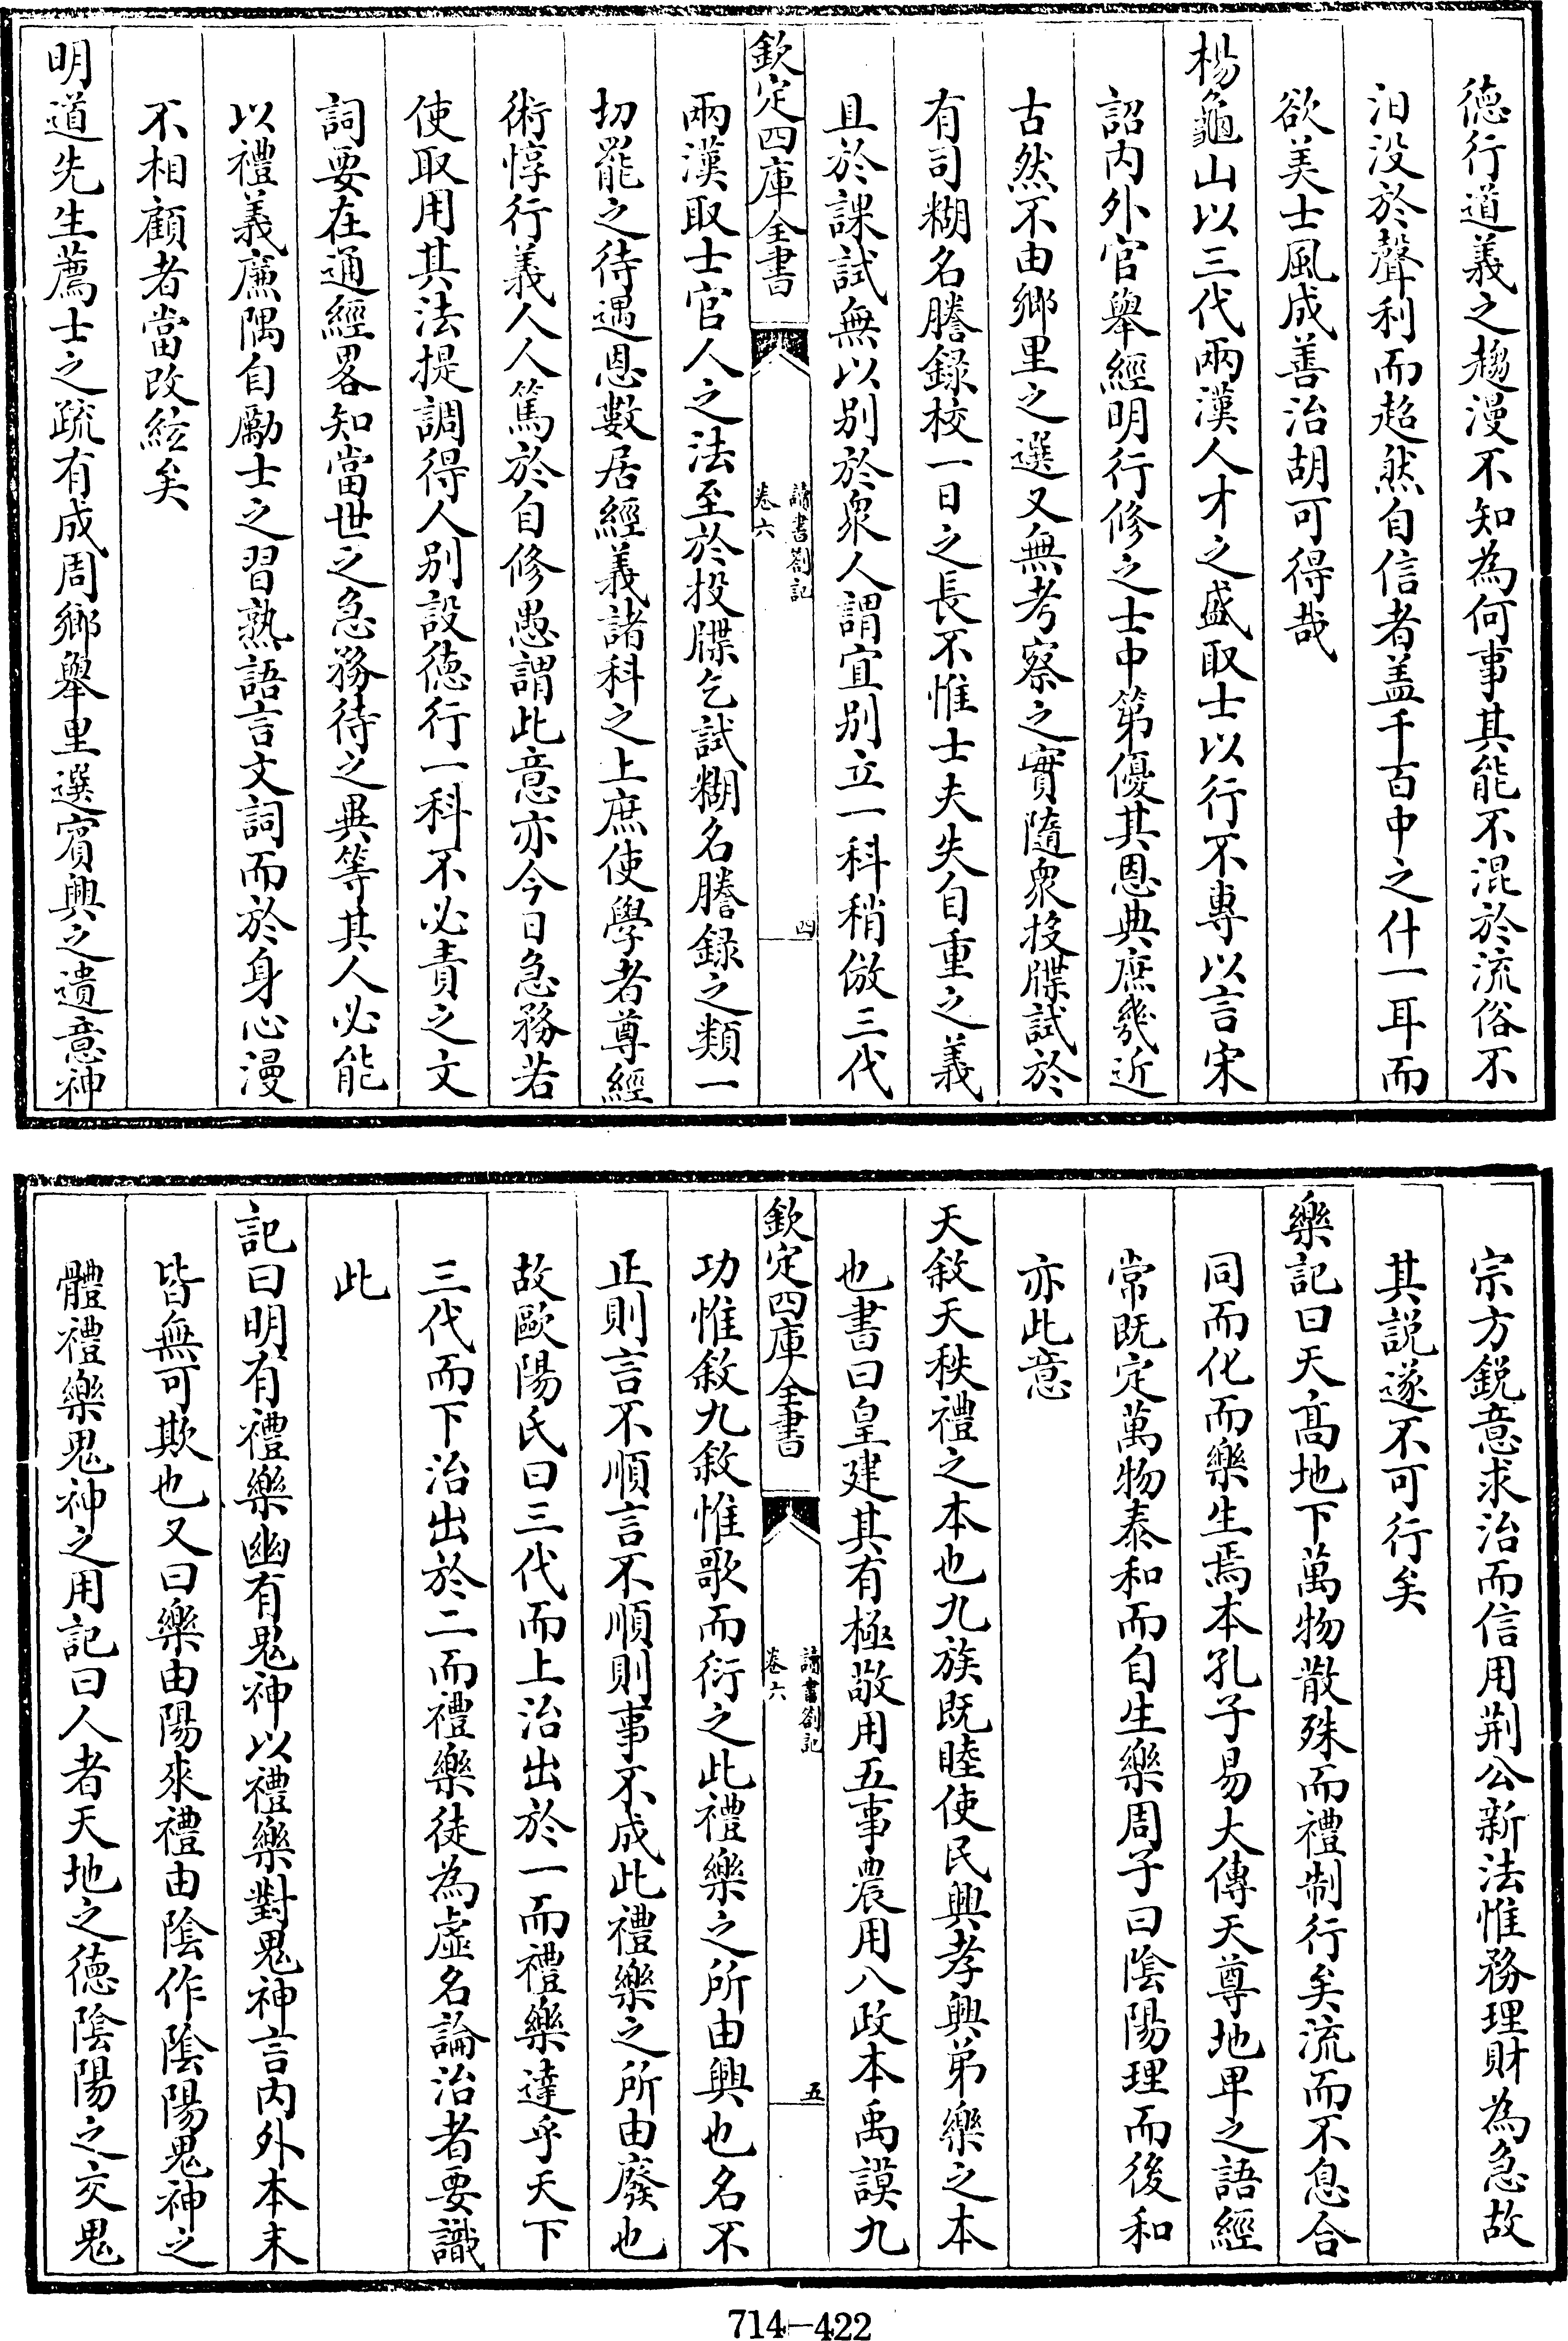 德行道義之趨漫不知為何事其能不混於流俗不
汨没於聲利而超然自信者盖千百中之什一耳而
欲美士風成善治胡可得哉
楊龜山以三代兩漢人才之盛取士以行不專以言宋
詔内外官舉經明行修之士中第優其恩典庶幾近
古然不由鄉里之選又無考察之實隨衆投牒試於
有司糊名謄録校一日之長不惟士夫失自重之義
且於課試無以别於衆人謂宜别立一科稍倣三代
欽定四庫全書
讀書劄記
卷六
四
兩漢取士官人之法至於投牒乞試糊名謄録之類一
切罷之待遇恩數居經義諸科之上庶使學者尊經
術惇行義人人篤於自修愚謂此意亦今日急務若
使取用其法提調得人别設德行一科不必責之文
詞要在通經畧知當世之急務待之異等其人必能
以禮義廉隅自勵士之習熟語言文詞而於身心漫
不相顧者當改絃矣
明道先生薦士之疏有成周鄉舉里選賓興之遺意神
宗方鋭意求治而信用荆公新法惟務理財為急故
其説遂不可行矣
樂記曰天髙地下萬物散殊而禮制行矣流而不息合
同而化而樂生焉本孔子易大傳天尊地卑之語經
常既定萬物泰和而自生樂周子曰隂陽理而後和
亦此意
天敘天秩禮之本也九族既睦使民興孝興弟樂之本
也書曰皇建其有極敬用五事農用八政本禹謨九
欽定四庫全書
讀書劄記
卷六
五
功惟敘九敘惟歌而衍之此禮樂之所由興也名不
正則言不順言不順則事不成此禮樂之所由廢也
故歐陽氏曰三代而上治出於一而禮樂達乎天下
三代而下治出於二而禮樂徒為虛名論治者要識
此
記曰明有禮樂幽有鬼神以禮樂對鬼神言内外本末
皆無可欺也又曰樂由陽來禮由陰作隂陽鬼神之
體禮樂鬼神之用記曰人者天地之德隂陽之交鬼
714-422